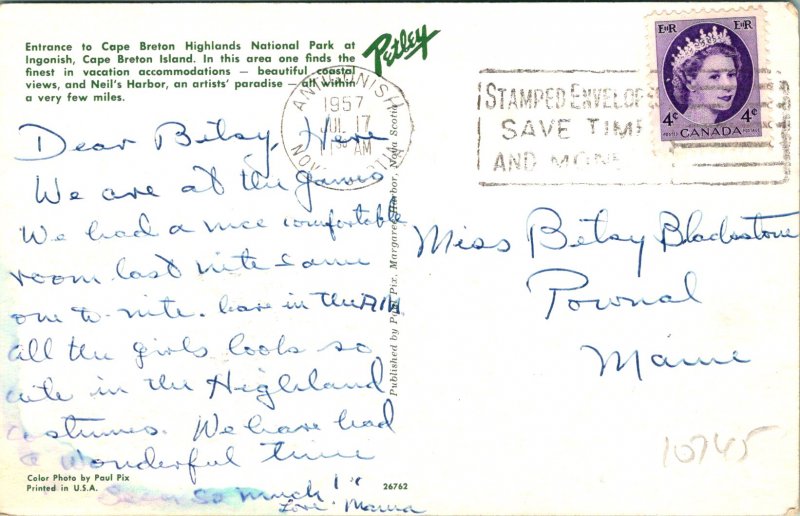 Entrance to Cape Breton Highlands National Park at
Ingonish, Cape Breton Island. In this area one finds the
finest in vacation accommodations — beautiful coastal
views, and Neil's Harbor, an artists' paradise — all within
a very few miles.
Petley
ANTIGONISH
1957
JUL 17
AM
STAMPED ENVELOPES
SAVE TIME
AND MONEY
EIIR EIIR
4¢ 4¢
CANADA
POSTES POSTAGE
Dear Betsy, Here
We are at the games
We had a nice comfortable
room last nite same
one to-nite. here in the
all the girls look so
cute in the Highland
costumes. We have had
a wonderful time
seen so much!!
Love Mama
Published by Paul Pix, Margaree Harbor, Nova Scotia
Miss Betsy Blackstone
Pownal
Maine
10745
Color Photo by Paul Pix
Printed in U.S.A.
26762